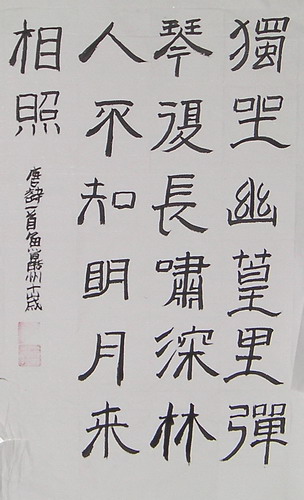 獨坐幽篁里彈
琴復長嘯深林
人不知明月来
相照
唐詩首